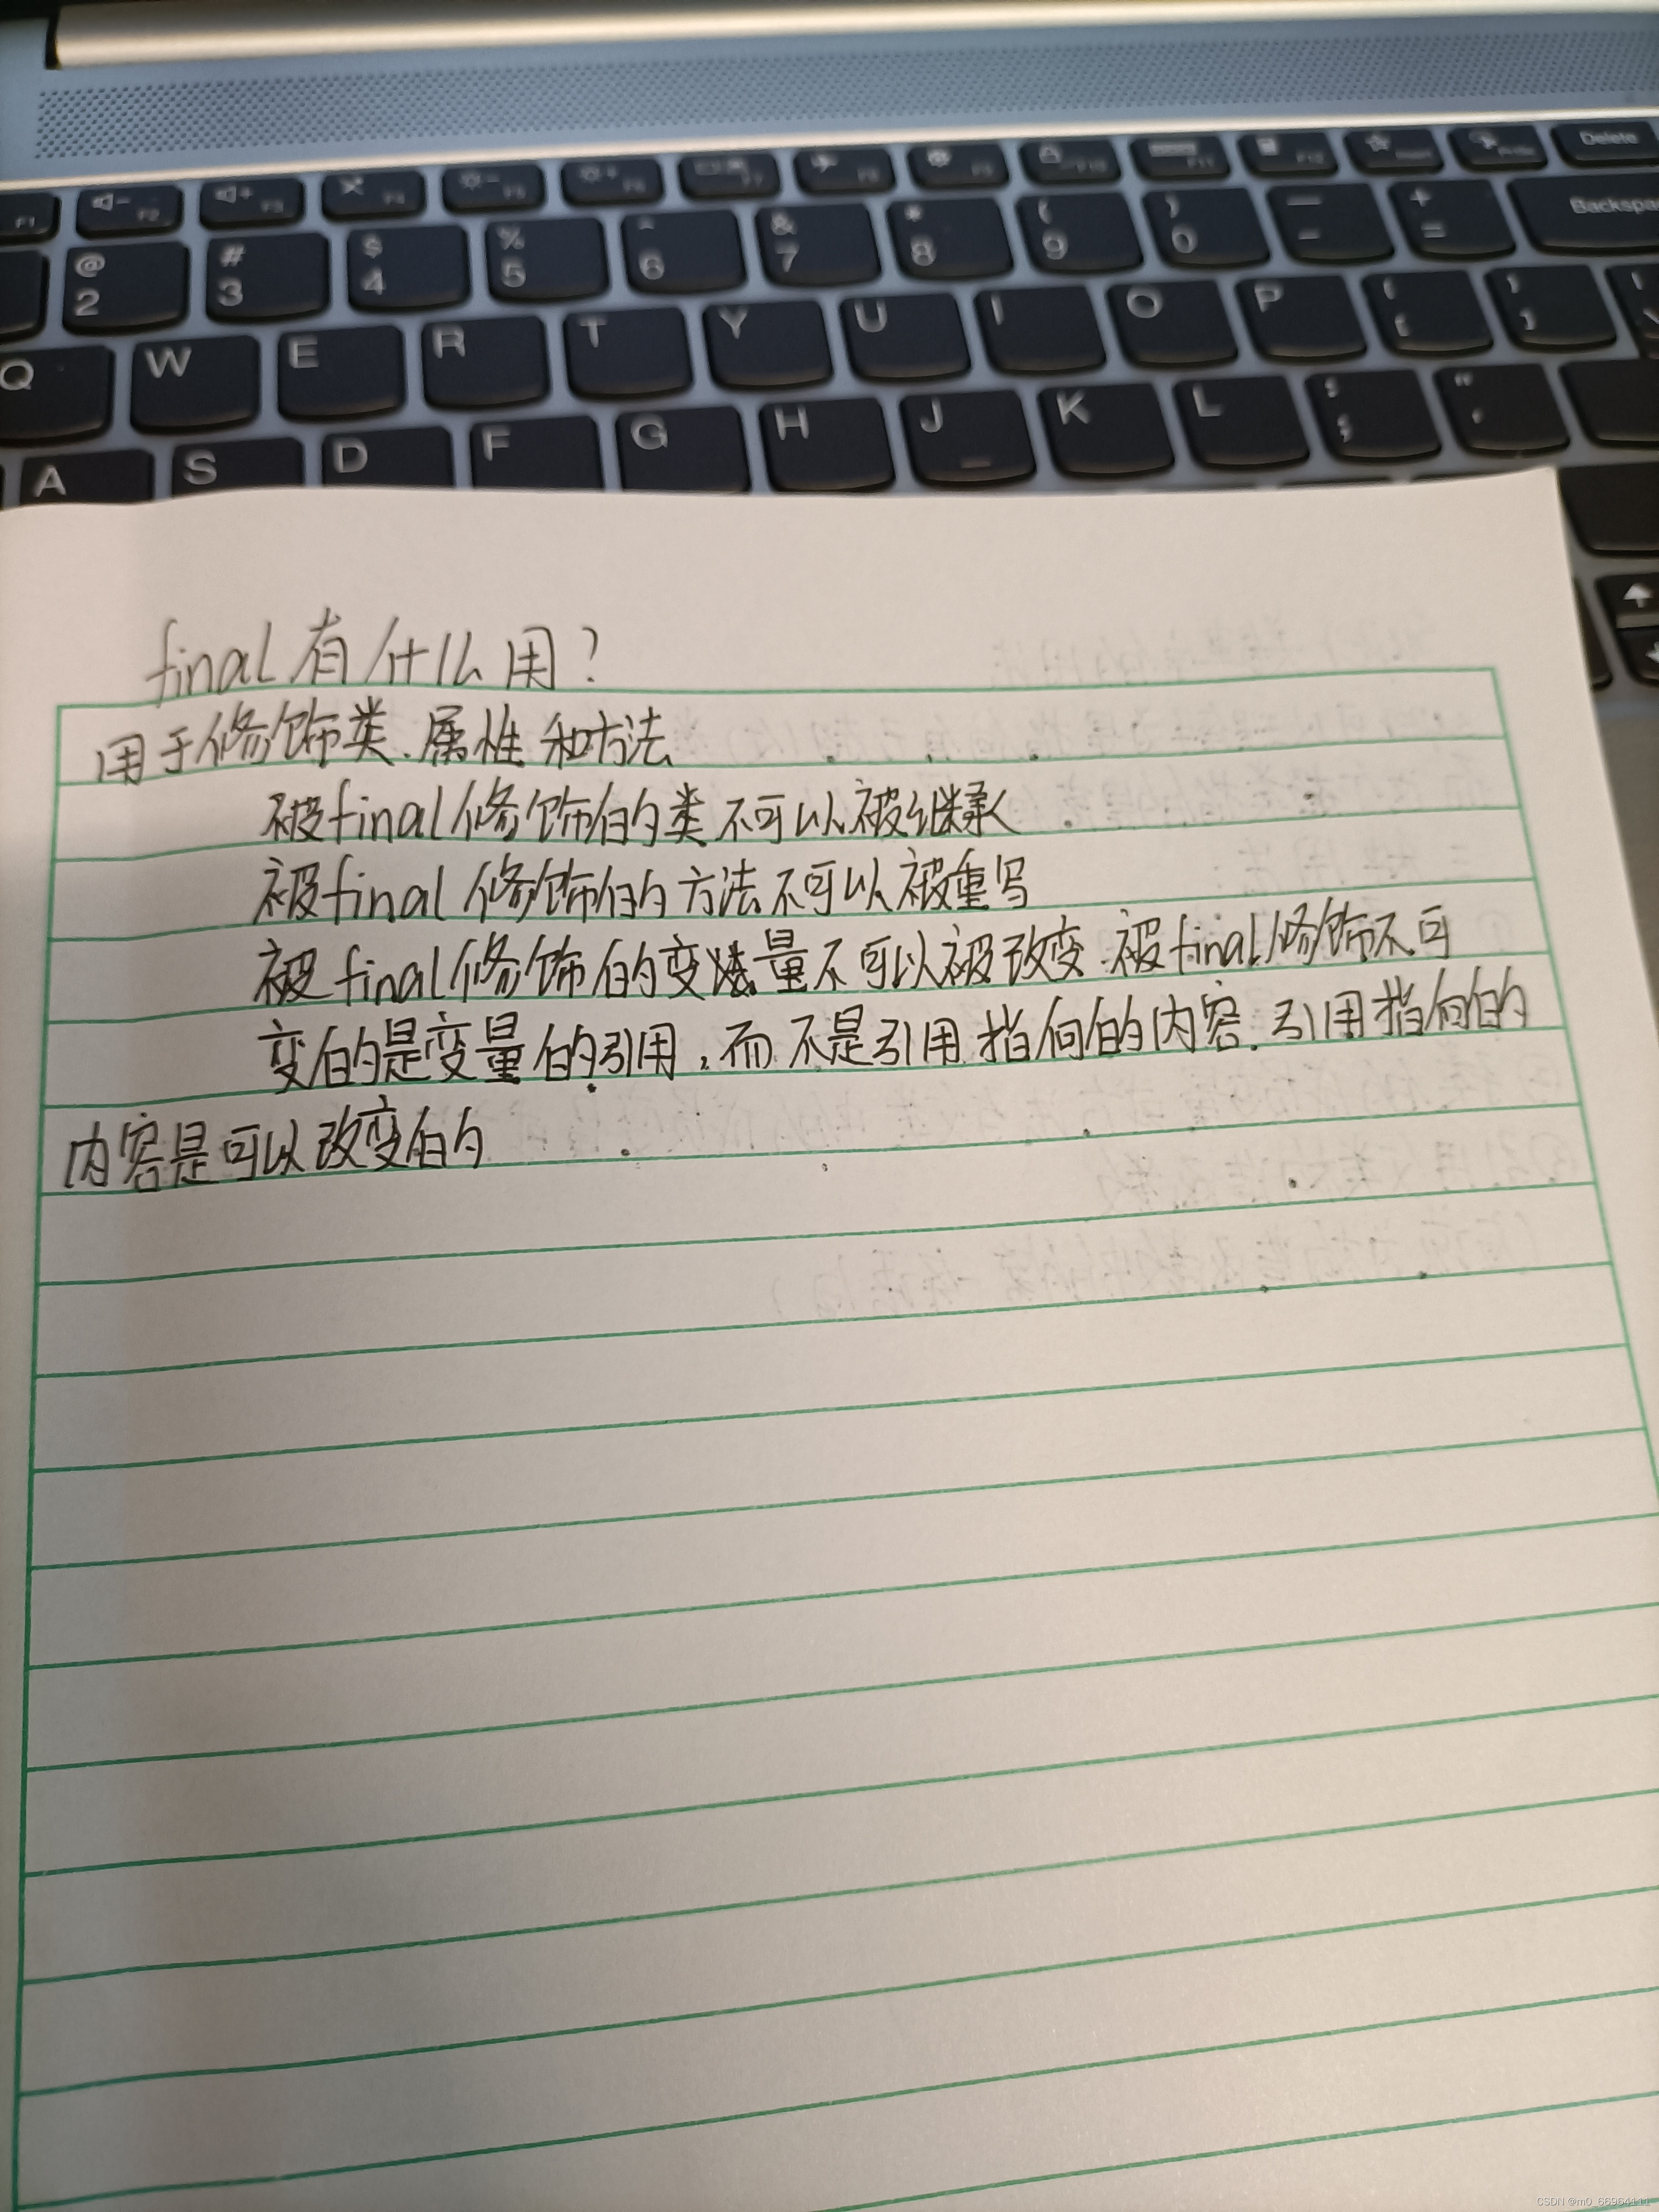 F1 F2 F3 F4 F5 F6 F7 F8 F9 F10 F11 F12 Delete
@ # $ % ^ & * ( ) — +
2 3 4 5 6 7 8 9 0 - = Backspac
Q W E R T Y U I O P { }
[ ]
A S D F G H J K L : "
; '
final有什么用?
用于修饰类.属性和方法
被final修饰的类不可以被继承
被final修饰的方法不可以被重写
被final修饰的变量不可以被改变.被final修饰不可
变的是变量的引用,而不是引用指向的内容.引用指向的
内容是可以改变的
CSDN @m0_66964111